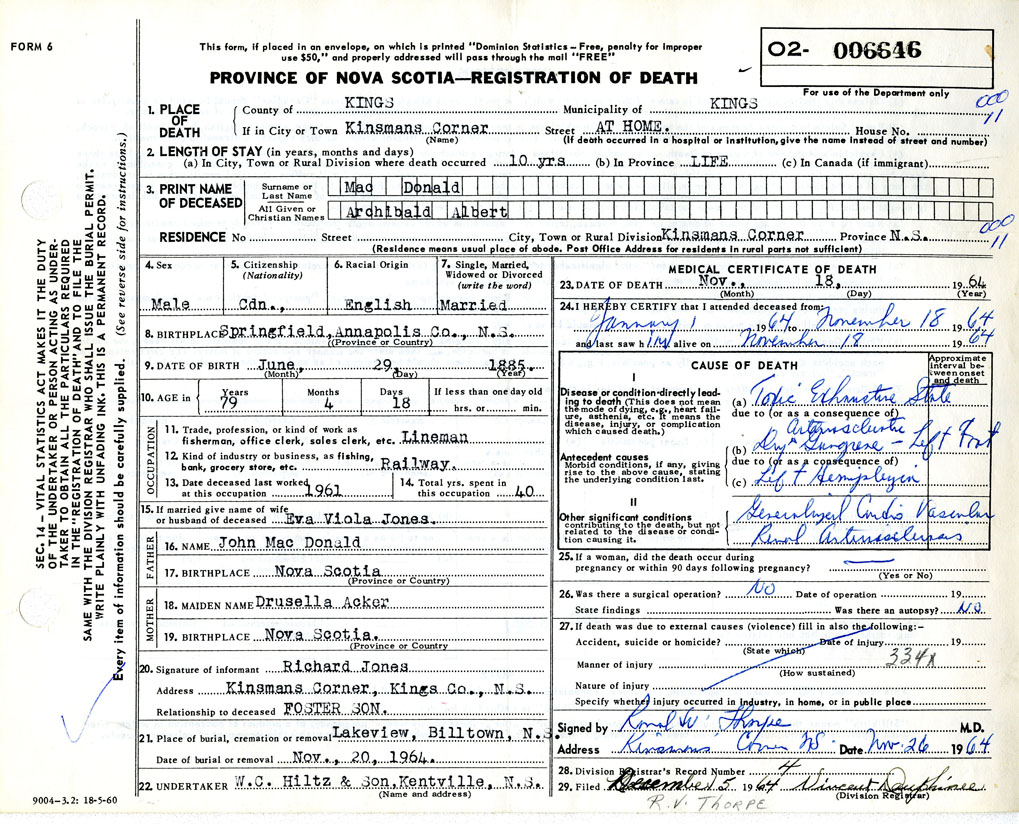 FORM 6
This form, if placed in an envelope, on which is printed "Dominion Statistics – Free, penalty for improper
use $50," and properly addressed will pass through the mail "FREE"
PROVINCE OF NOVA SCOTIA—REGISTRATION OF DEATH
O2- 006646
For use of the Department only
000
11
1. PLACE OF DEATH
County of KINGS Municipality of KINGS
If in City or Town Kinsmans Corner Street AT HOME. House No.
(Name) (If death occurred in a hospital or institution, give the name instead of street and number)
2. LENGTH OF STAY (in years, months and days)
(a) In City, Town or Rural Division where death occurred 10 yrs (b) In Province LIFE (c) In Canada (if immigrant)
3. PRINT NAME OF DECEASED
Surname or Last Name Mac Donald
All Given or Christian Names Archibald Albert
000
11
RESIDENCE No Street City, Town or Rural Division Kinsmans Corner Province N.S.
(Residence means usual place of abode. Post Office Address for residents in rural parts not sufficient)
4. Sex
Male
5. Citizenship (Nationality)
Cdn.,
6. Racial Origin
English
7. Single, Married, Widowed or Divorced (write the word)
Married
8. BIRTHPLACE Springfield, Annapolis Co., N.S.
(Province or Country)
9. DATE OF BIRTH June, 29, 1885.
(Month) (Day) (Year)
10. AGE in Years 79 Months 4 Days 18 If less than one day old hrs. or min.
OCCUPATION
11. Trade, profession, or kind of work as
fisherman, office clerk, sales clerk, etc. Lineman
12. Kind of industry or business, as fishing,
bank, grocery store, etc. Railway.
13. Date deceased last worked
at this occupation 1961
14. Total yrs. spent in
this occupation 40
15. If married give name of wife
or husband of deceased Eva Viola Jones.
FATHER
16. NAME John Mac Donald
17. BIRTHPLACE Nova Scotia
(Province or Country)
MOTHER
18. MAIDEN NAME Drusella Acker
19. BIRTHPLACE Nova Scotia.
(Province or Country
20. Signature of informant Richard Jones
Address Kinsmans Corner, Kings Co., N.S.
Relationship to deceased FOSTER SON.
21. Place of burial, cremation or removal Lakeview, Billtown, N.S.
Date of burial or removal Nov., 20, 1964.
22. UNDERTAKER W.C. Hiltz & Son, Kentville, N.S.
(Name and address)
9004-3.2: 18-5-60
MEDICAL CERTIFICATE OF DEATH
23. DATE OF DEATH Nov., 18, 1964
(Month) (Day) (Year)
24. I HEREBY CERTIFY that I attended deceased from:
January 1 1964 to November 18 1964
and last saw him alive on November 18 1964
CAUSE OF DEATH
Approximate interval between onset and death
I
Disease or condition directly leading to death (This does not mean
the mode of dying, e.g., heart failure, asthenia, etc. It means the
disease, injury, or complication
which caused death.)
(a) Toxic Exhaustive State
due to (or as a consequence of)
Arteriosclerotic
(b) Dry Gangrene – Left Foot
Antecedent causes
Morbid conditions, if any, giving
rise to the above cause, stating
the underlying condition last.
due to (or as a consequence of)
(c) Left Hemiplegia
II
Other significant conditions
contributing to the death, but not
related to the disease or condition causing it.
Generalized Cardio Vascular
Renal Arteriosclerosis
25. If a woman, did the death occur during
pregnancy or within 90 days following pregnancy?
(Yes or No)
26. Was there a surgical operation? NO Date of operation 19
State findings Was there an autopsy? NO
27. If death was due to external causes (violence) fill in also the following:–
Accident, suicide or homicide? Date of injury 19
(State which)
334x
Manner of injury
(How sustained)
Nature of injury
Specify whether injury occurred in industry, in home, or in public place
Signed by Ronal W. Thorpe M.D.
Address Kinsmans Corner NS. Date Nov 26 1964
28. Division Registrar's Record Number 4
29. Filed December 5 1964 Vincent Dauphinee
(Division Registrar)
R.V. THORPE
SEC. 14 – VITAL STATISTICS ACT MAKES IT THE DUTY
OF THE UNDERTAKER OR PERSON ACTING AS UNDER-
TAKER TO OBTAIN ALL THE PARTICULARS REQUIRED
IN THE "REGISTRATION OF DEATH" AND TO FILE THE
SAME WITH THE DIVISION REGISTRAR WHO SHALL ISSUE THE BURIAL PERMIT.
WRITE PLAINLY WITH UNFADING INK. THIS IS A PERMANENT RECORD.
Every item of information should be carefully supplied. (See reverse side for instructions.)